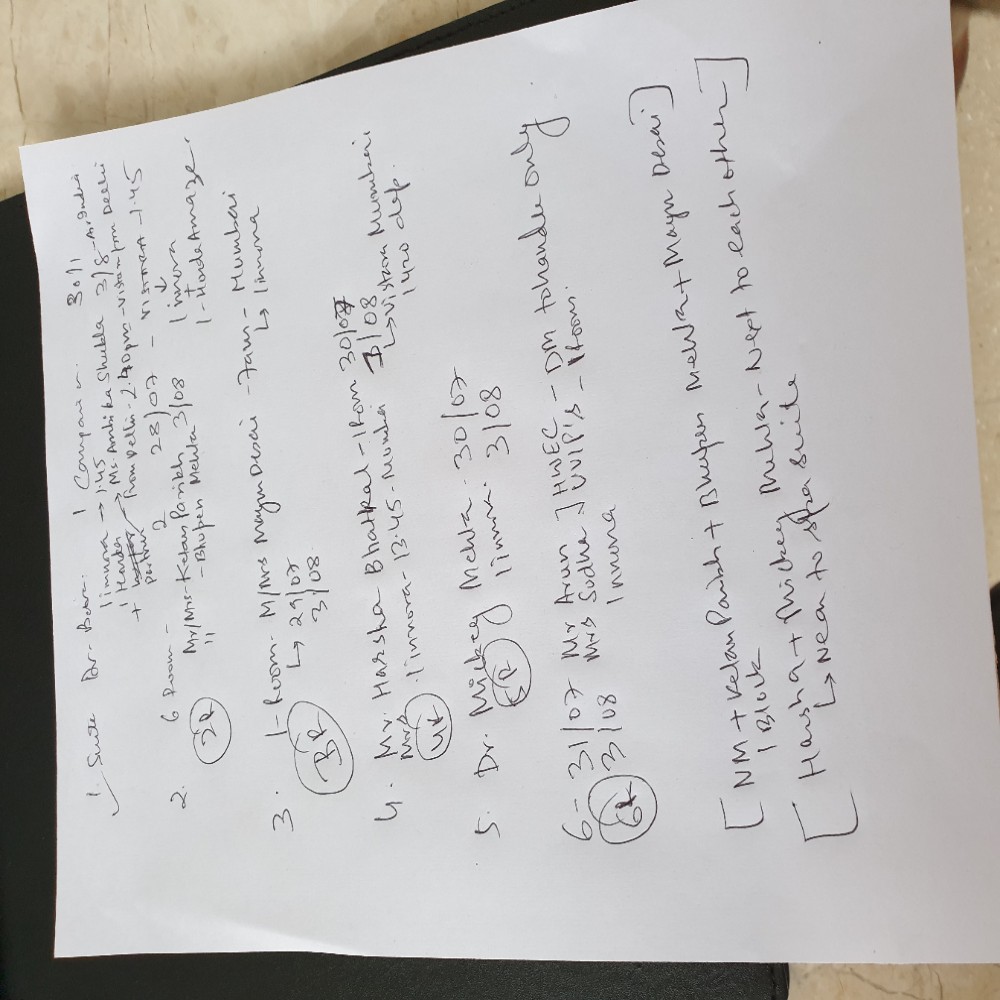 1. Suite Dr. 1 Companion. 30%
1 innova → 1.45
1 Honda → Ms. Ambika Shukla 3/8 - Air India
+ from Delhi - 2.40pm - vistara from Delhi
6 Room - 2 28/07 - VISTARA - 1.45
2. Mr/Mrs - Ketan Parikh 3/08 ↓
" - Bhupen Mehta 1 innova
+
1 - Honda Amaze.
2R
3. 1 - Room - M/Mrs Mayur Desai - 7am - Mumbai
↳ 29/07 ↳ 1 innova
3/08.
3R
4. Mr. Harsha Bhatkal - 1 Room 30/07
Mrs 1 innova - 13.45 - Mumbai 3/08
↳ Vistara Mumbai
1420 dep.
4R
5. Dr. Mickey Mehta - 30/07
1 innova. 3/08
5R
6 - 31/07 Mr Arun ] HWEC - DM to handle only
3/08 Mrs Sudha ] VVIP's - 1 Room.
Innova
6R
[ NM + Ketan Parikh + Bhupen Mehta + Mayur Desai ]
1 Block
[ Harsha + Mickey Mehta - Next to each other ]
↳ Near to Spa Suite